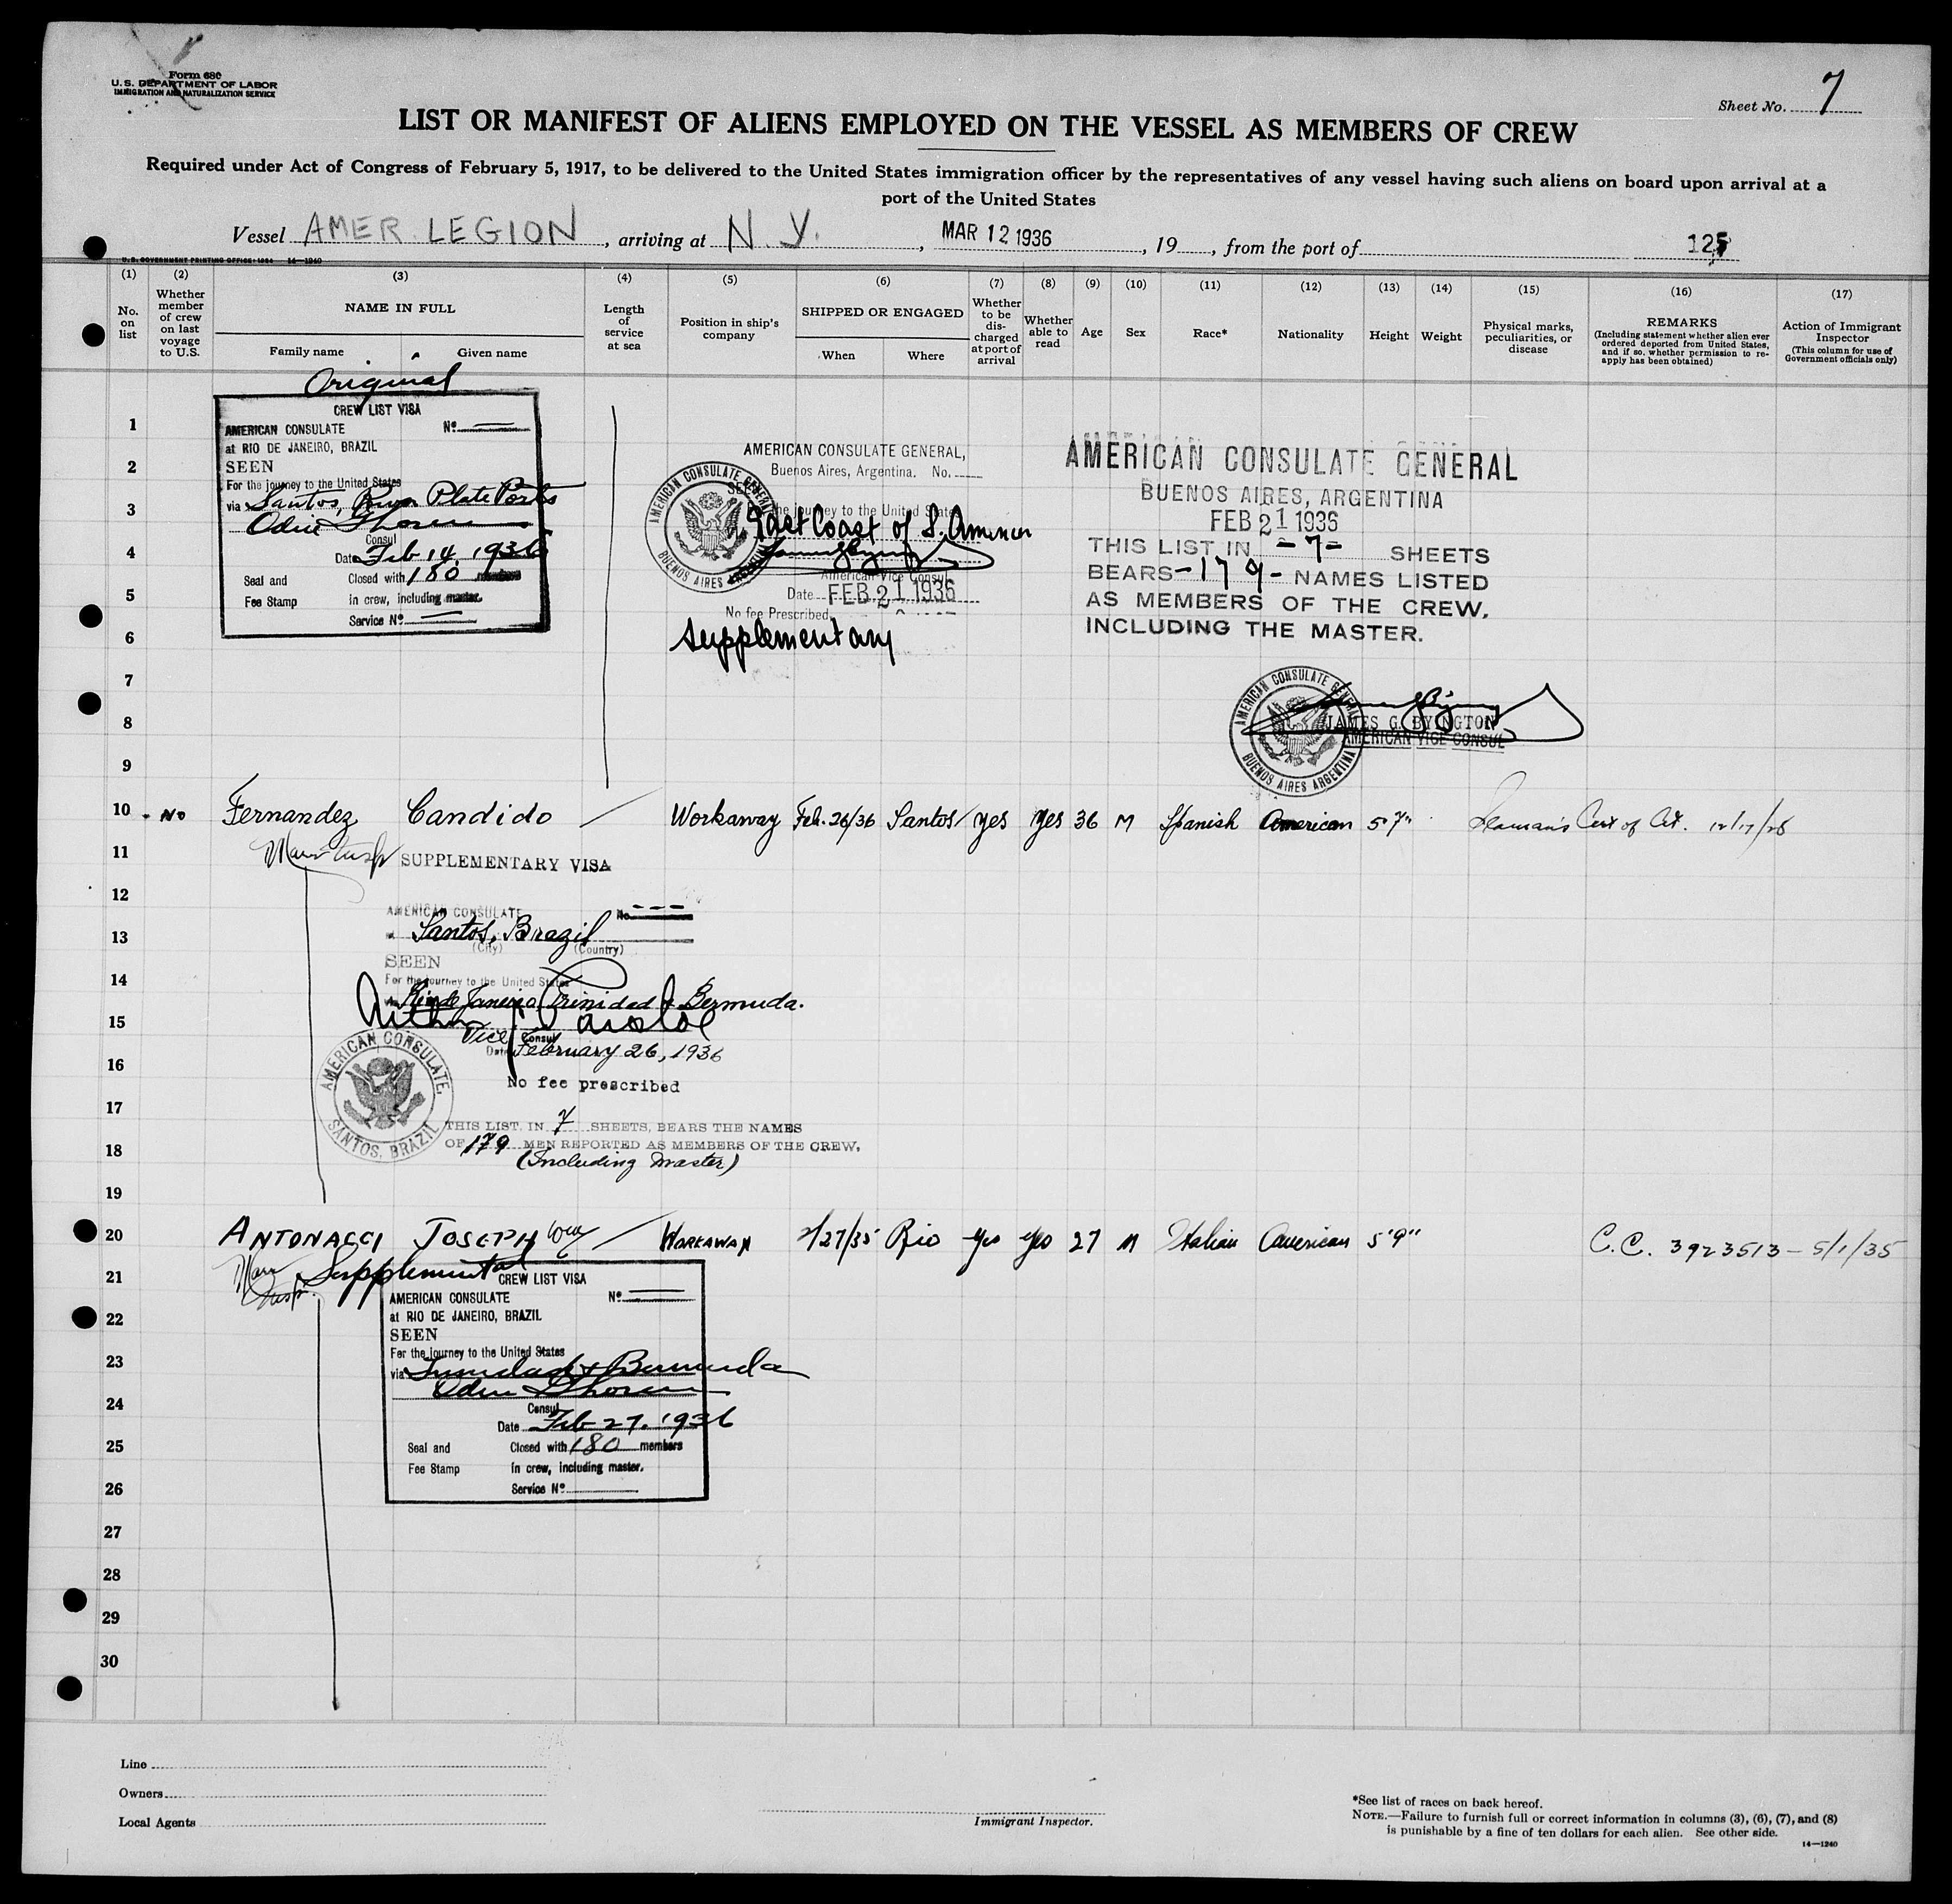 Form 680
U.S. DEPARTMENT OF LABOR
IMMIGRATION AND NATURALIZATION SERVICE
Sheet No. 7
LIST OR MANIFEST OF ALIENS EMPLOYED ON THE VESSEL AS MEMBERS OF CREW
Required under Act of Congress of February 5, 1917, to be delivered to the United States immigration officer by the representatives of any vessel having such aliens on board upon arrival at a
port of the United States
Vessel AMER. LEGION, arriving at N.Y., MAR 12 1936, 19, from the port of 125
U.S. GOVERNMENT PRINTING OFFICE: 1934 14—1240
(1) (2) (3) (4) (5) (6) (7) (8) (9) (10) (11) (12) (13) (14) (15) (16) (17)
No. on list
Whether member of crew on last voyage to U.S.
NAME IN FULL
Family name Given name
Length of service at sea
Position in ship's company
SHIPPED OR ENGAGED
When Where
Whether to be discharged at port of arrival
Whether able to read
Age
Sex
Race*
Nationality
Height
Weight
Physical marks, peculiarities, or disease
REMARKS
(Including statement whether alien ever ordered deported from United States, and if so, whether permission to reapply has been obtained)
Action of Immigrant Inspector
(This column for use of Government officials only)
Original
CREW LIST VISA
AMERICAN CONSULATE Nº
at RIO DE JANEIRO, BRAZIL
SEEN
For the journey to the United States
via Santos, River Plate Ports
Consul
Date Feb 14, 1936
Seal and Closed with 180
Fee Stamp in crew, including master.
Service Nº
AMERICAN CONSULATE GENERAL,
Buenos Aires, Argentina. No.
SEEN
the journey to the United States
East Coast of S. America
American Vice Consul
Date FEB 21 1936
No fee Prescribed
Supplementary
AMERICAN CONSULATE GENERAL
BUENOS AIRES ARGENTINA
AMERICAN CONSULATE GENERAL
BUENOS AIRES, ARGENTINA
FEB 21 1936
THIS LIST IN -7- SHEETS
BEARS -179- NAMES LISTED
AS MEMBERS OF THE CREW,
INCLUDING THE MASTER.
AMERICAN CONSULATE GENERAL
BUENOS AIRES ARGENTINA
JAMES G. BYINGTON
AMERICAN VICE CONSUL
1
2
3
4
5
6
7
8
9
10 No Fernandez Candido / Workaway Feb. 26/36 Santos yes yes 36 M Spanish American 5'7" Seaman's Cert of Cit. 12/17/28
11 SUPPLEMENTARY VISA
12
AMERICAN CONSULATE No. ---
13 Santos, Brazil
(City) (Country)
SEEN
14 For the journey to the United States
via Rio de Janeiro, Trinidad & Bermuda.
15
Vice Consul
Date February 26, 1936
16
No fee prescribed
AMERICAN CONSULATE,
SANTOS, BRAZIL
17
THIS LIST, IN 7 SHEETS, BEARS THE NAMES
18 OF 179 MEN REPORTED AS MEMBERS OF THE CREW,
(Including Master)
19
20 ANTONACCI JOSEPH / WORKAWAY 2/27/35 Rio yes yes 27 M Italian American 5'9" C.C. 3923513 - 5/1/35
21 Supplemental
CREW LIST VISA
AMERICAN CONSULATE Nº
22 at RIO DE JANEIRO, BRAZIL
SEEN
23 For the journey to the United States
via Trinidad & Bermuda
24
Consul
Date Feb 27, 1936
25 Seal and Closed with 180 members
Fee Stamp in crew, including master.
26 Service Nº
27
28
29
30
Line
Owners
Local Agents
Immigrant Inspector.
*See list of races on back hereof.
NOTE.—Failure to furnish full or correct information in columns (3), (6), (7), and (8)
is punishable by a fine of ten dollars for each alien. See other side.
14—1240